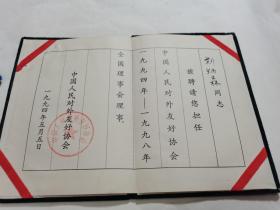 同志
兹聘请您担任
中国人民对外友好协会
一九九四年——一九九八年
全国理事会理事。
中国人民对外友好协会
一九九四年五月五日